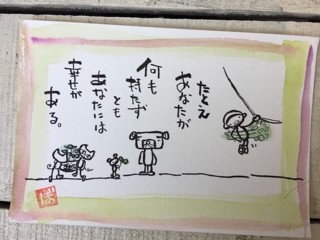 たとえ
あなたが
何も
持たず
とも
あなたには
幸せが
ある。